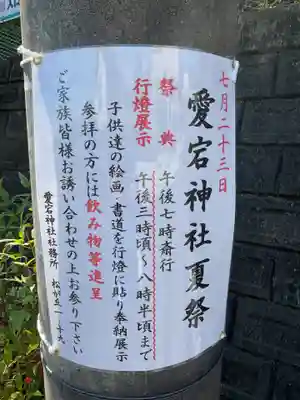 七月二十三日
愛宕神社夏祭
祭典 午後七時斎行
行燈展示 午後三時頃～八時半頃まで
子供達の絵画・書道を行燈に貼り奉納展示
参拝の方には飲み物等進呈
ご家族皆様お誘い合わせの上お参り下さい
愛宕神社社務所